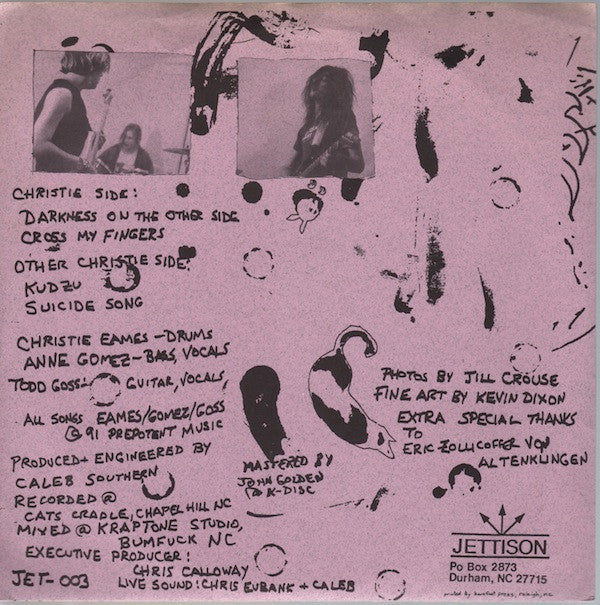 CHRISTIE SIDE:
DARKNESS ON THE OTHER SIDE
CROSS MY FINGERS
OTHER CHRISTIE SIDE:
KUDZU
SUICIDE SONG
CHRISTIE EAMES - DRUMS
ANNE GOMEZ - BASS, VOCALS
TODD GOSS - GUITAR, VOCALS,
ALL SONGS EAMES/GOMEZ/GOSS
© 91 PREPOTENT MUSIC
PRODUCED + ENGINEERED BY
CALEB SOUTHERN
RECORDED @
CATS CRADLE, CHAPEL HILL NC
MIXED @ KRAPTONE STUDIO,
BUMFUCK NC
EXECUTIVE PRODUCER:
CHRIS CALLOWAY
LIVE SOUND: CHRIS EUBANK + CALEB
JET-003
MASTERED BY
JOHN GOLDEN
@ K-DISC
PHOTOS BY JILL CROUSE
FINE ART BY KEVIN DIXON
EXTRA SPECIAL THANKS
TO
ERIC ZOLLICOFFER VON
ALTENKLINGEN
JETTISON
Po Box 2873
Durham, NC 27715
printed by barefoot press, raleigh, nc